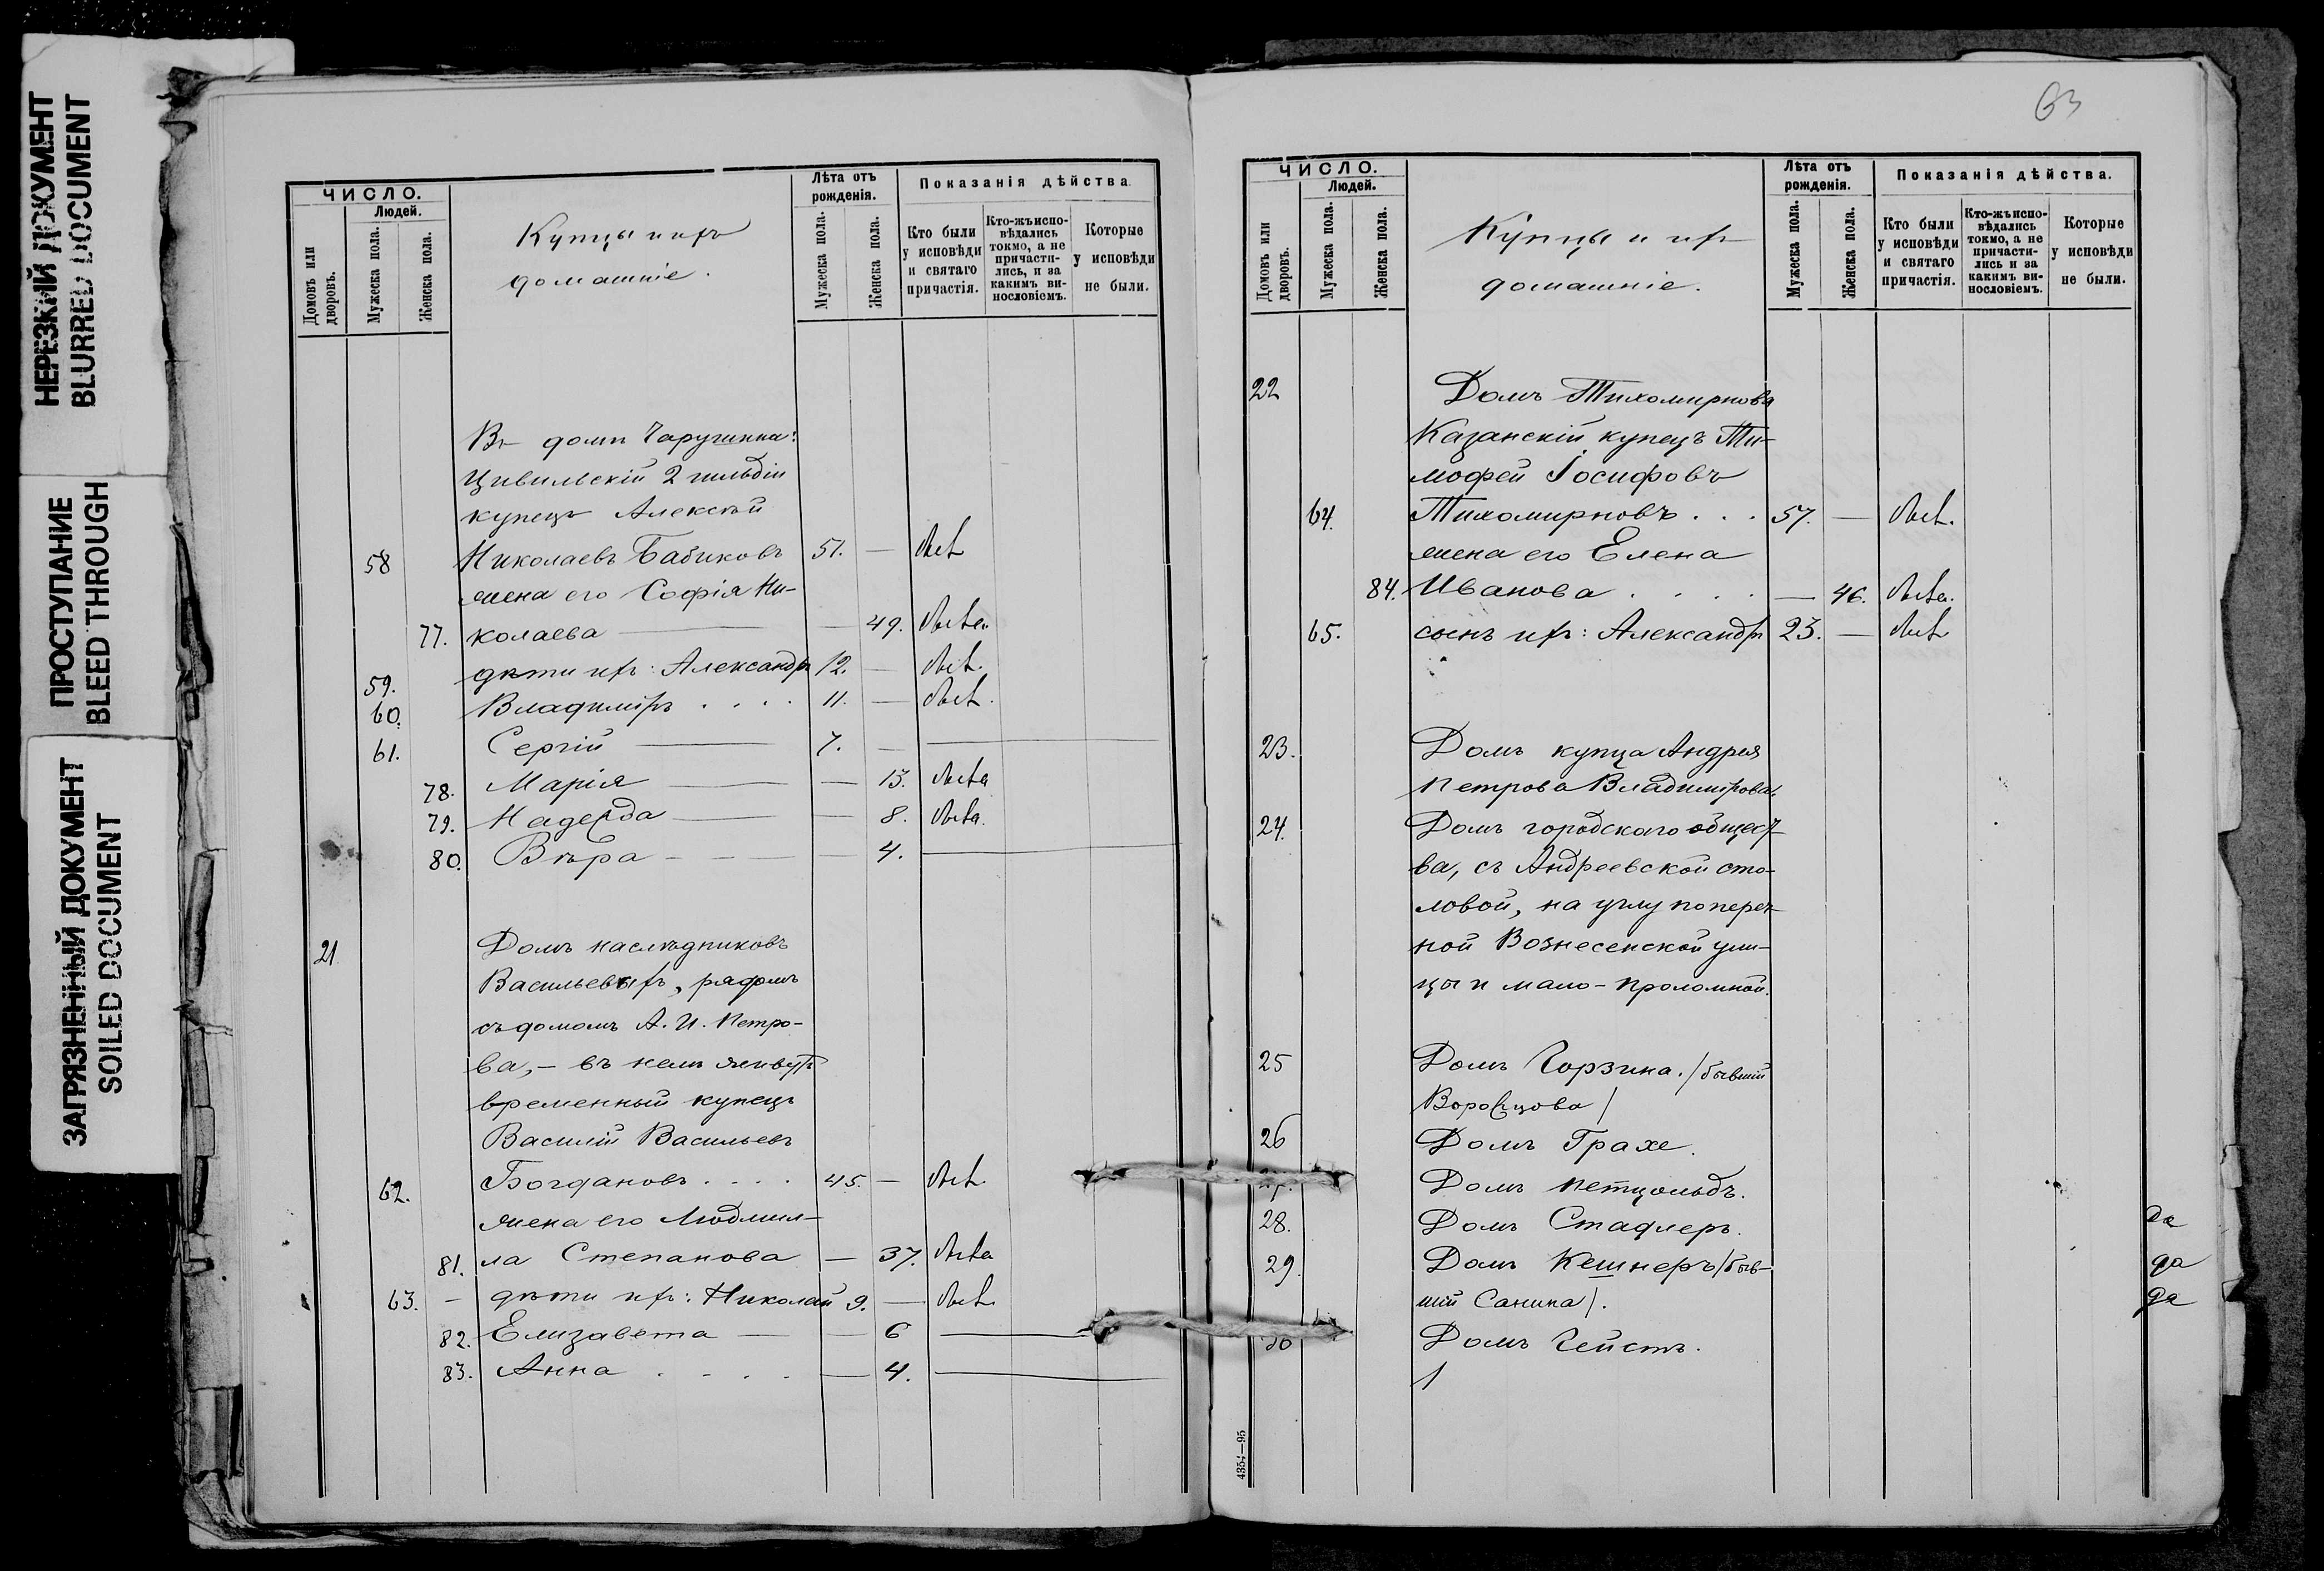 НЕРЕЗКИЙ ДОКУМЕНТ
BLURRED DOCUMENT
ПРОСТУПАНИЕ
BLEED THROUGH
ЗАГРЯЗНЕННЫЙ ДОКУМЕНТ
SOILED DOCUMENT
ЧИСЛО.
Людей.
Домовъ или дворовъ.
Мужеска пола.
Женска пола.
Купцы и ихъ
домашніе.
Лѣта отъ рожденія.
Мужеска пола.
Женска пола.
Показанія дѣйства.
Кто были у исповѣди и святаго причастія.
Кто-жъ исповѣдались токмо, а не причастились, и за какимъ винословіемъ.
Которые у исповѣди не были.
Въ домѣ Чаругинна:
Цивильскій 2 гильдіи
купецъ Алексѣй
58 Николаевъ Бабиковъ 51. — былъ
жена его Софія Ни-
77. колаева — — 49. была
59. дѣти ихъ: Александръ 12. — былъ.
60. Владиміръ . . . . 11. — былъ.
61. Сергій — 7. — —
78. Марія — — 13. была
79. Надежда — — 8. была.
80. Вѣра - - - — 4. —
21 Домъ наслѣдниковъ
Васильевыхъ, рядомъ
съ домомъ А. И. Петро-
ва, - въ немъ живутъ
временный купецъ
Василій Васильевъ
62. Богдановъ . . . . 45. — былъ.
жена его Людмил-
81. ла Степанова — 37. была
63. - дѣти ихъ: Николай 9. — былъ
82. Елизавета — — 6 —
83. Анна . . . . — 4. —
63
ЧИСЛО.
Людей.
Домовъ или дворовъ.
Мужеска пола.
Женска пола.
Купцы и ихъ
домашніе.
Лѣта отъ рожденія.
Мужеска пола.
Женска пола.
Показанія дѣйства.
Кто были у исповѣди и святаго причастія.
Кто-жъ исповѣдались токмо, а не причастились и за какимъ винословіемъ.
Которые у исповѣди не были.
22 Домъ Тихомирнова
Казанскій купецъ Ти-
мофей Іосифовъ
64. Тихомирновъ . . . 57. — былъ.
жена его Елена
84. Иванова . . . . — 46. была.
65. сынъ ихъ: Александръ 23. — былъ
23. Домъ купца Андрея
Петрова Владимірова.
24. Домъ городскаго общест-
ва, съ Андреевской сто-
ловой, на углу попереч-
ной Вознесенской ули-
цы и мало-проломной.
25 Домъ Горзина. /бывшій
Воронцова/
26 Домъ Грахе.
27. Домъ Петцольдъ.
28. Домъ Стадлеръ.
29. Домъ Кешнеръ /быв-
шій Санина/.
30 Домъ Гейстъ.
да
да
да
4354—95